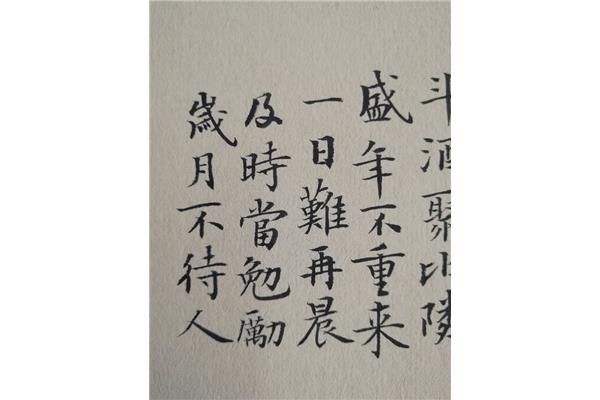 斗酒聚比隣
盛年不重来
一日難再晨
及時當勉勵
歲月不待人